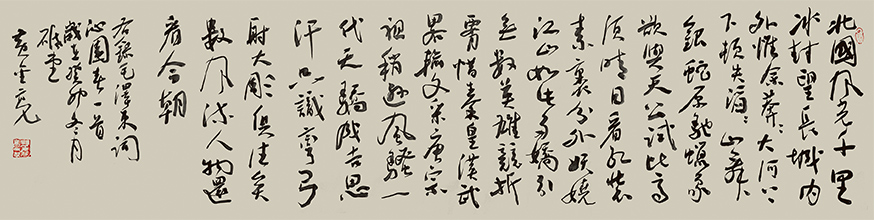 北國风光千里
冰封望長城内
外惟余莽〻大河上
下頓失滔〻山舞
銀蛇原馳蠟象
欲與天公試比高
須晴日看紅裝
素裹分外妖嬈
江山如此多嬌引
無數英雄競折
腰惜秦皇漢武
畧輸文采唐宗
祖稍遜風騷一
代天驕成吉思
汗只識彎弓
射大彫俱往矣
數风流人物還
看今朝
右錄毛澤東詞
沁園春一首
歲在癸卯冬月